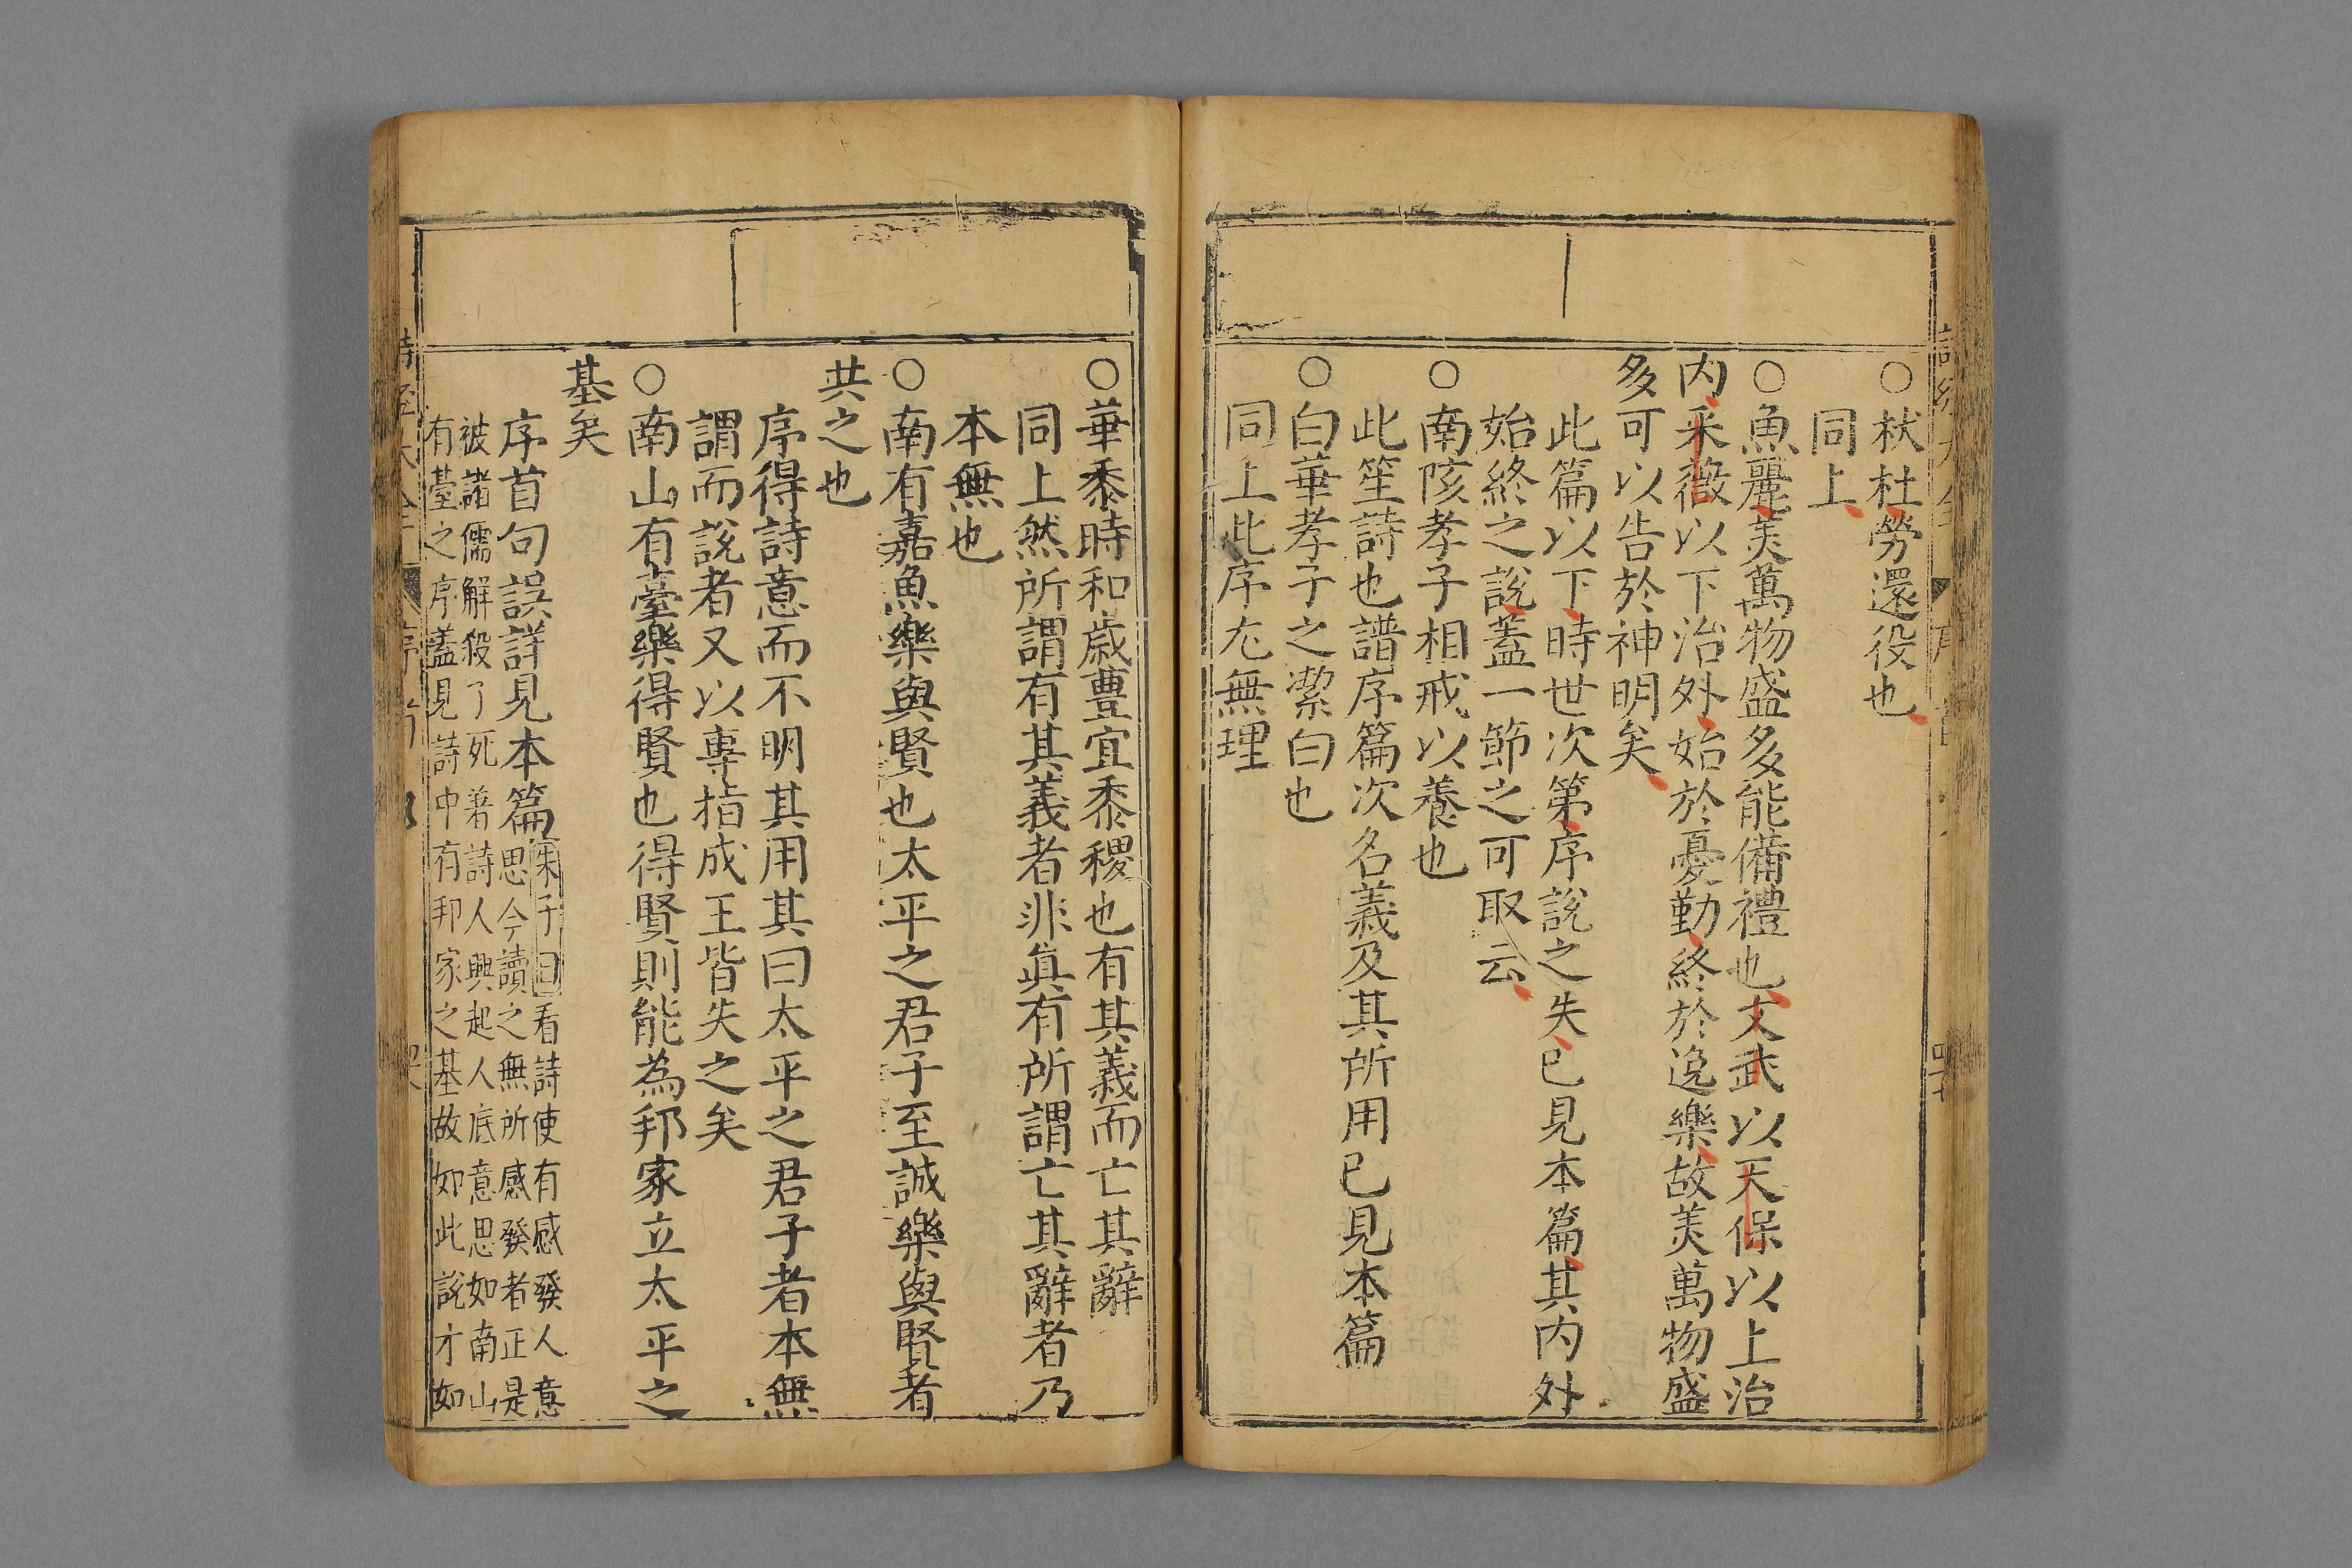 ○杕杜勞還役也
同上
○魚麗美萬物盛多能備禮也文武以天保以上治
內采薇以下治外始於憂勤終於逸樂故美萬物盛
多可以告於神明矣
此篇以下時世次第序說之失已見本篇其內外
始終之說蓋一節之可取云
○南陔孝子相戒以養也
此笙詩也譜序篇次名義及其所用已見本篇
○白華孝子之潔白也
同上此序尢無理
○華黍時和歲豊宜黍稷也有其義而亡其辭
同上然所謂有其義者非眞有所謂亡其辭者乃
本無也
○南有嘉魚樂與賢也太平之君子至誠樂與賢者
共之也
序得詩意而不明其用其曰太平之君子者本無
謂而說者又以專指成王皆失之矣
○南山有臺樂得賢也得賢則能為邦家立太平之
基矣
序首句誤詳見本篇朱子曰看詩使有感發人意
思今讀之無所感發者正是
被諸儒解殺了死著詩人興起人底意思如南山
有臺之序蓋見詩中有邦家之基故如此說才如